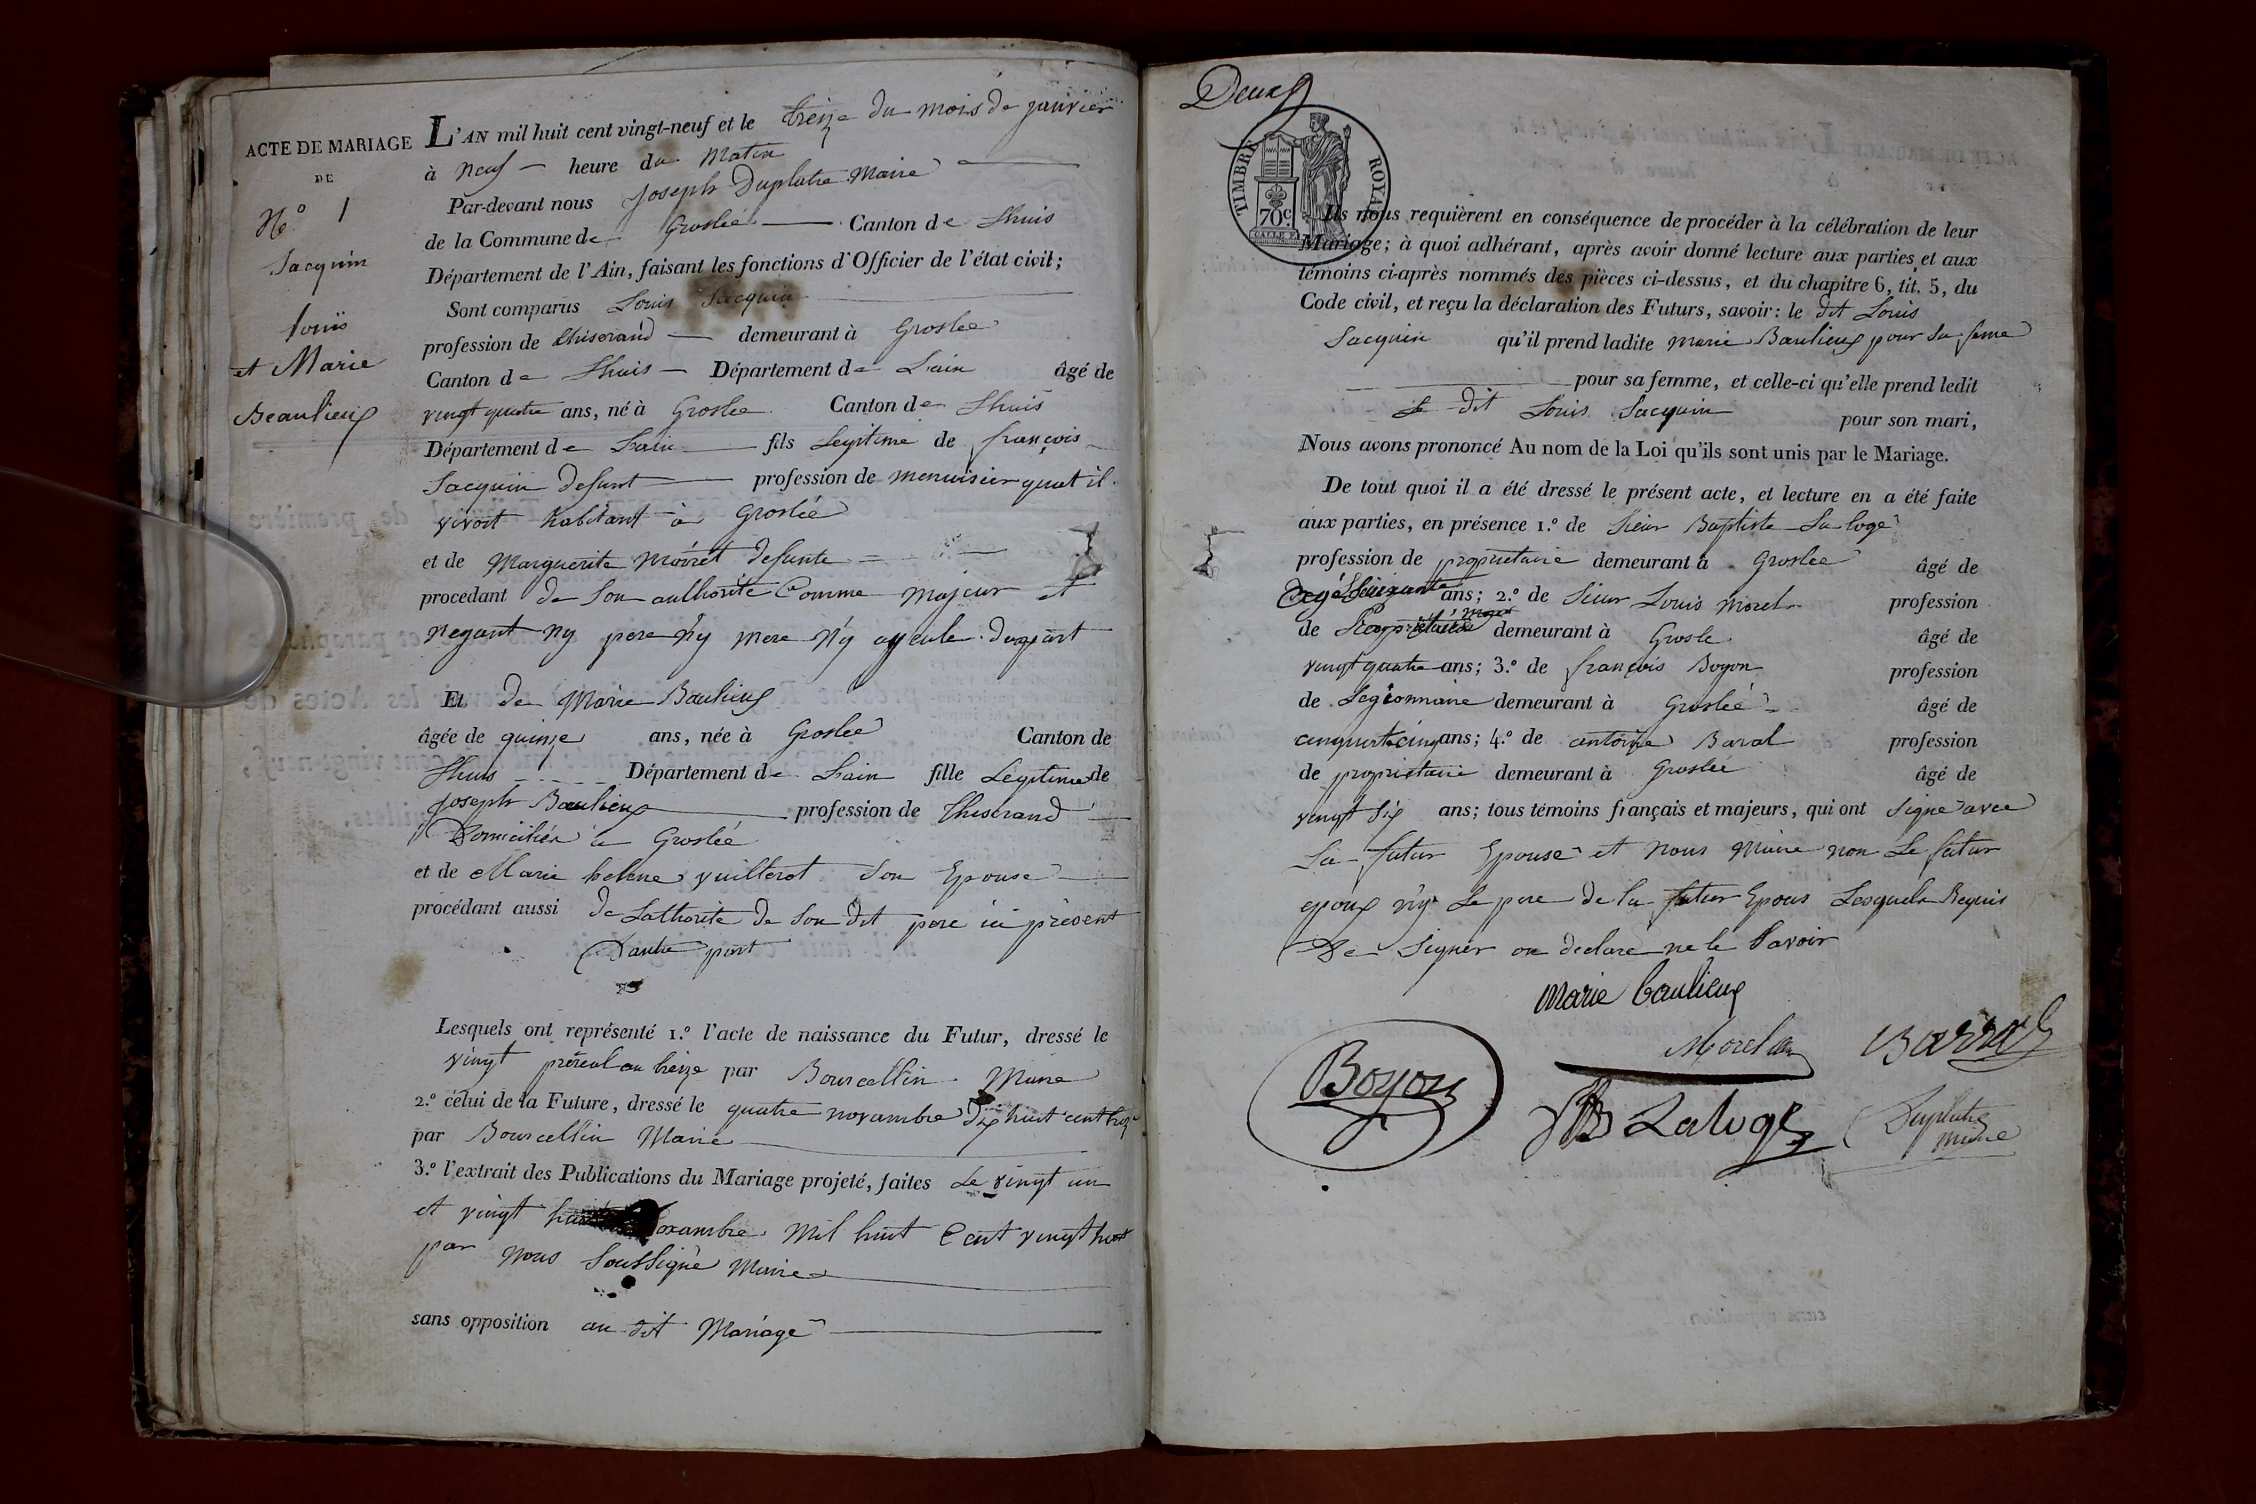 ACTE DE MARIAGE
DE
N.º 1
Jacquin
louis
et Marie
Beaulieux
L'AN mil huit cent vingt-neuf et le treize du mois de janvier
à neuf heure du Matin
Par-devant nous Joseph Duplatre Maire
de la Commune de Groslée Canton de Lhuis
Département de l'Ain, faisant les fonctions d'Officier de l'état civil;
Sont comparus Louis Jacquin
profession de thiserand demeurant à Groslee
Canton de Lhuis Département de Lain âgé de
vingt quatre ans, né à Groslee Canton de Lhuis
Département de Lain fils Legitime de françois
Jacquin defunt profession de menuisier quat il
vivoit habitant à Groslée
et de Marguerite moiret defunte
procedant de son authorité Comme majeur et
neyant ny pere n'y mere n'y ayeule dunpart
Et de Marie Baulieux
âgée de quinze ans, née à Groslée Canton de
Lhuis Département de Lain fille Legitime de
Joseph Baulieux profession de thiserand
Domicilier à Groslée
et de Marie helene vuillerot son Epouse
procédant aussi de Lathorité de son dit pere ici present
Dautre part
Lesquels ont représenté 1.º l'acte de naissance du Futur, dressé le
vingt prereal an treize par Bourcellin Maire
2.º celui de la Future, dressé le quatre novambre dix huit cent treze
par Bourcellin Maire
3.º l'extrait des Publications du Mariage projeté, faites Le vingt un
et vingt huit mil huit Cent vingt huit
par nous soussigné Maire
sans opposition au dit Mariage
Deux
TIMBRE ROYAL
70c
Ils nous requièrent en conséquence de procéder à la célébration de leur
Mariage; à quoi adhérant, après avoir donné lecture aux parties et aux
témoins ci-après nommés des pièces ci-dessus, et du chapitre 6, tit. 5, du
Code civil, et reçu la déclaration des Futurs, savoir: le dit Louis
Jacquin qu'il prend ladite marie Baulieux pour sa fame
pour sa femme, et celle-ci qu'elle prend ledit
le dit Louis Jacquin pour son mari,
Nous avons prononcé Au nom de la Loi qu'ils sont unis par le Mariage.
De tout quoi il a été dressé le présent acte, et lecture en a été faite
aux parties, en présence 1.º de sieur Baptiste La loge
profession de propriétaire demeurant à Groslee âgé de
ans; 2.º de sieur Louis morel profession
de demeurant à Grosle âgé de
vingt quatre ans; 3.º de françois Boyon profession
de Legionnaire demeurant à Groslée âgé de
cinquante cinq ans; 4.º de antoine Baral profession
de propriétaire demeurant à Groslée âgé de
vingt six ans; tous témoins français et majeurs, qui ont signe avec
La futur Epouse et nous Maire non Le futur
epoux n'y Le pere de la futur Epous Lesquels Requis
De signer on declare ne le savoir
Marie baulieux
Morel
Barral
Boyon
JB Laloge
Duplatre
maire